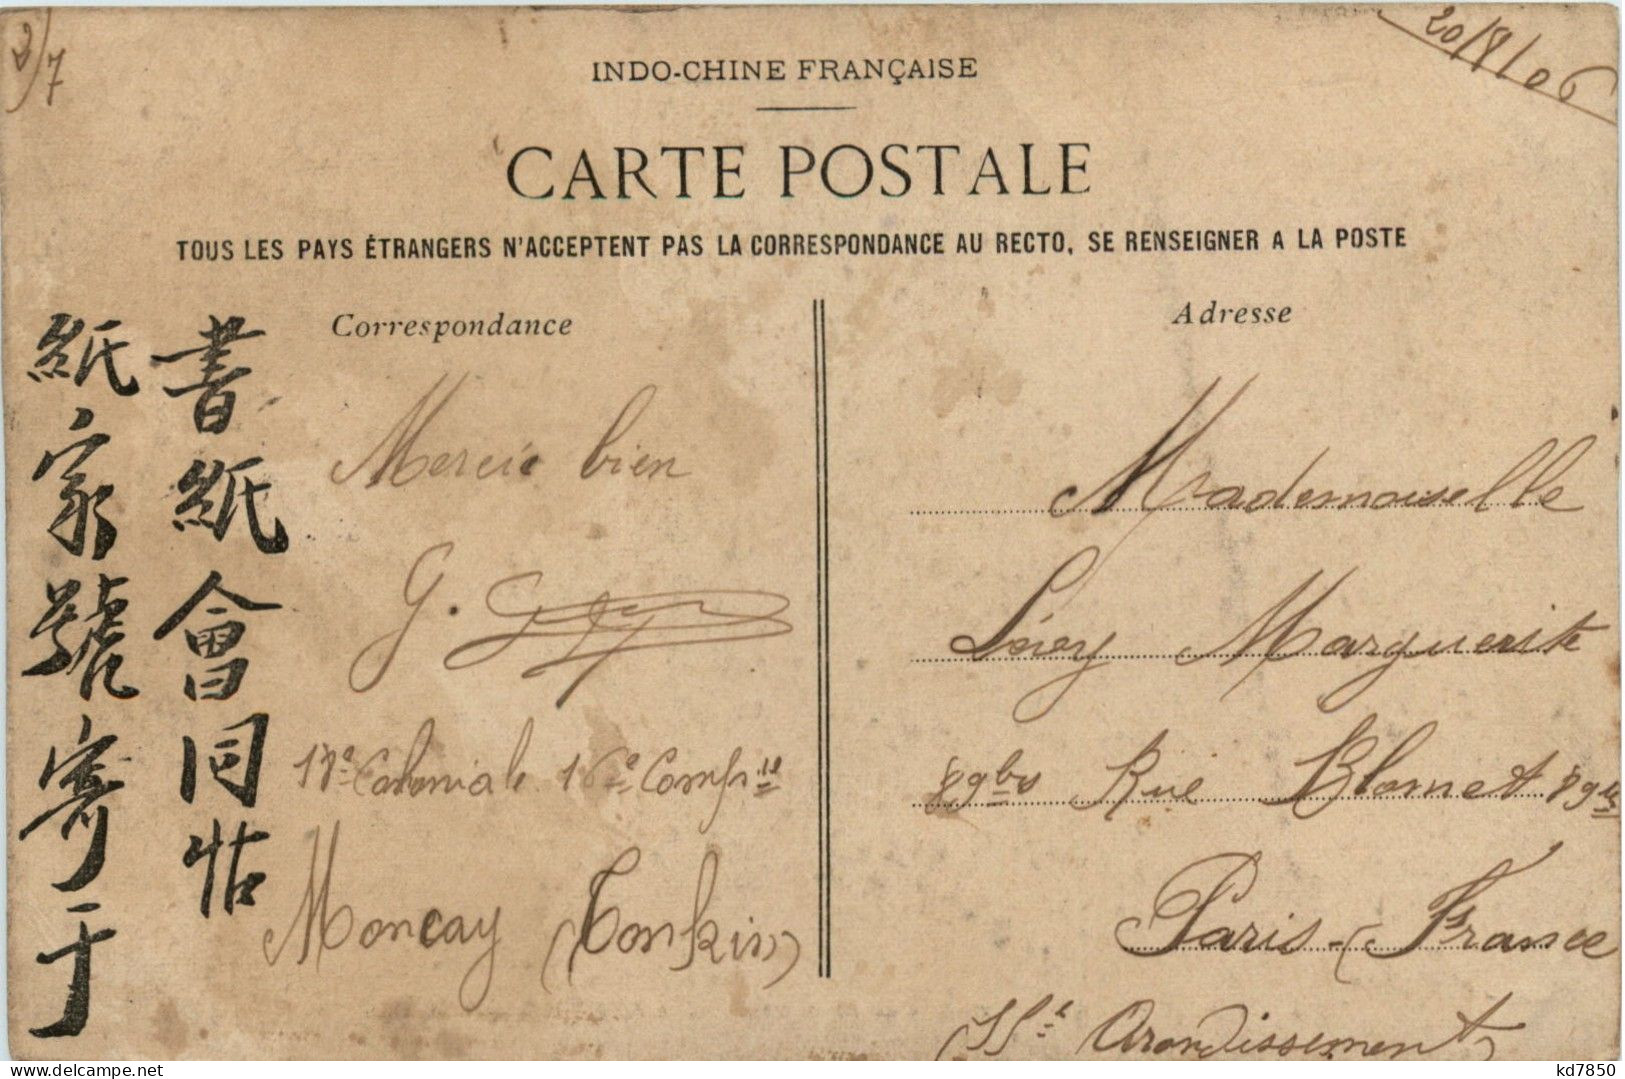 3/7
20/8/06
INDO-CHINE FRANÇAISE
CARTE POSTALE
TOUS LES PAYS ÉTRANGERS N'ACCEPTENT PAS LA CORRESPONDANCE AU RECTO, SE RENSEIGNER A LA POSTE
書紙會同帖
紙家號寄于
Correspondance
Mercie bien
G.
18e Coloniale 16e Compnie
Moncay (Tonkin)
Adresse
Mademoiselle
Lévy Marguerite
89bis Rue Blomet 89bis
Paris-(France
15e Arondissement
kd7850